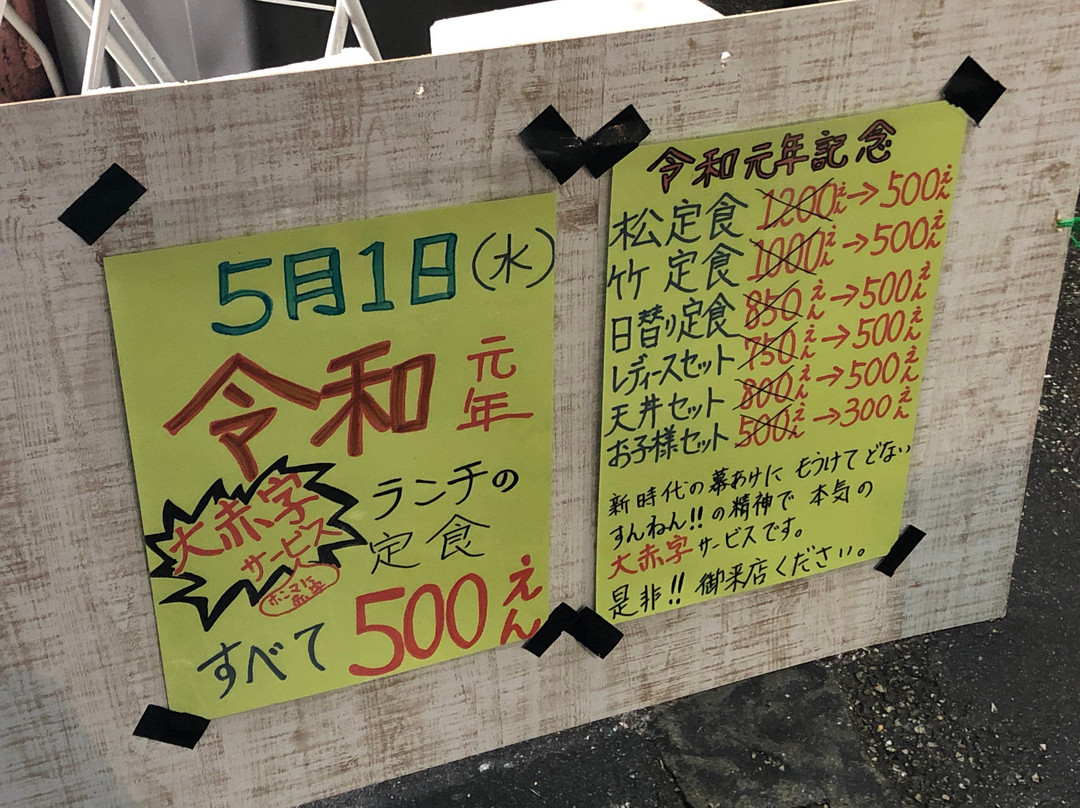 5月1日(水)
令和元年
大赤字
サービス
ホンマに
ランチの
定食
すべて500えん
令和元年記念
松定食 1200えん→500えん
竹定食 1000えん→500えん
日替り定食 850えん→500えん
レディースセット 750えん→500えん
天丼セット 800えん→500えん
お子様セット 500えん→300えん
新時代の幕あけに もうけてどない
すんねん!!の精神で 本気の
大赤字サービスです。
是非!! 御来店ください。